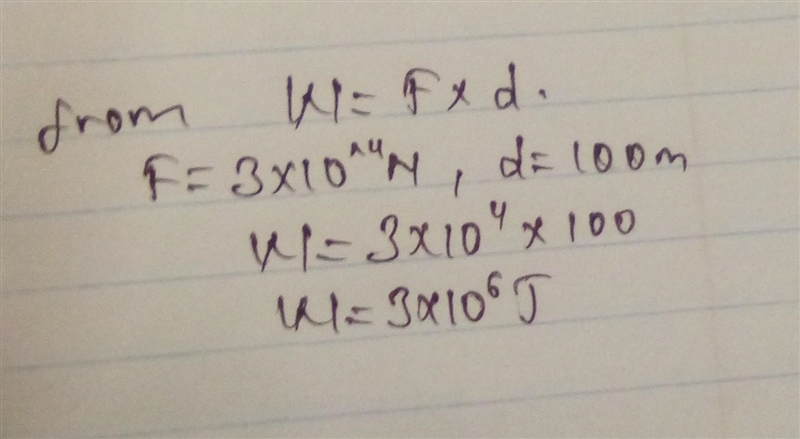 from W = F x d.
F = 3x10^4 N, d = 100m
W = 3x10⁴ x 100
W = 3x10⁶ J